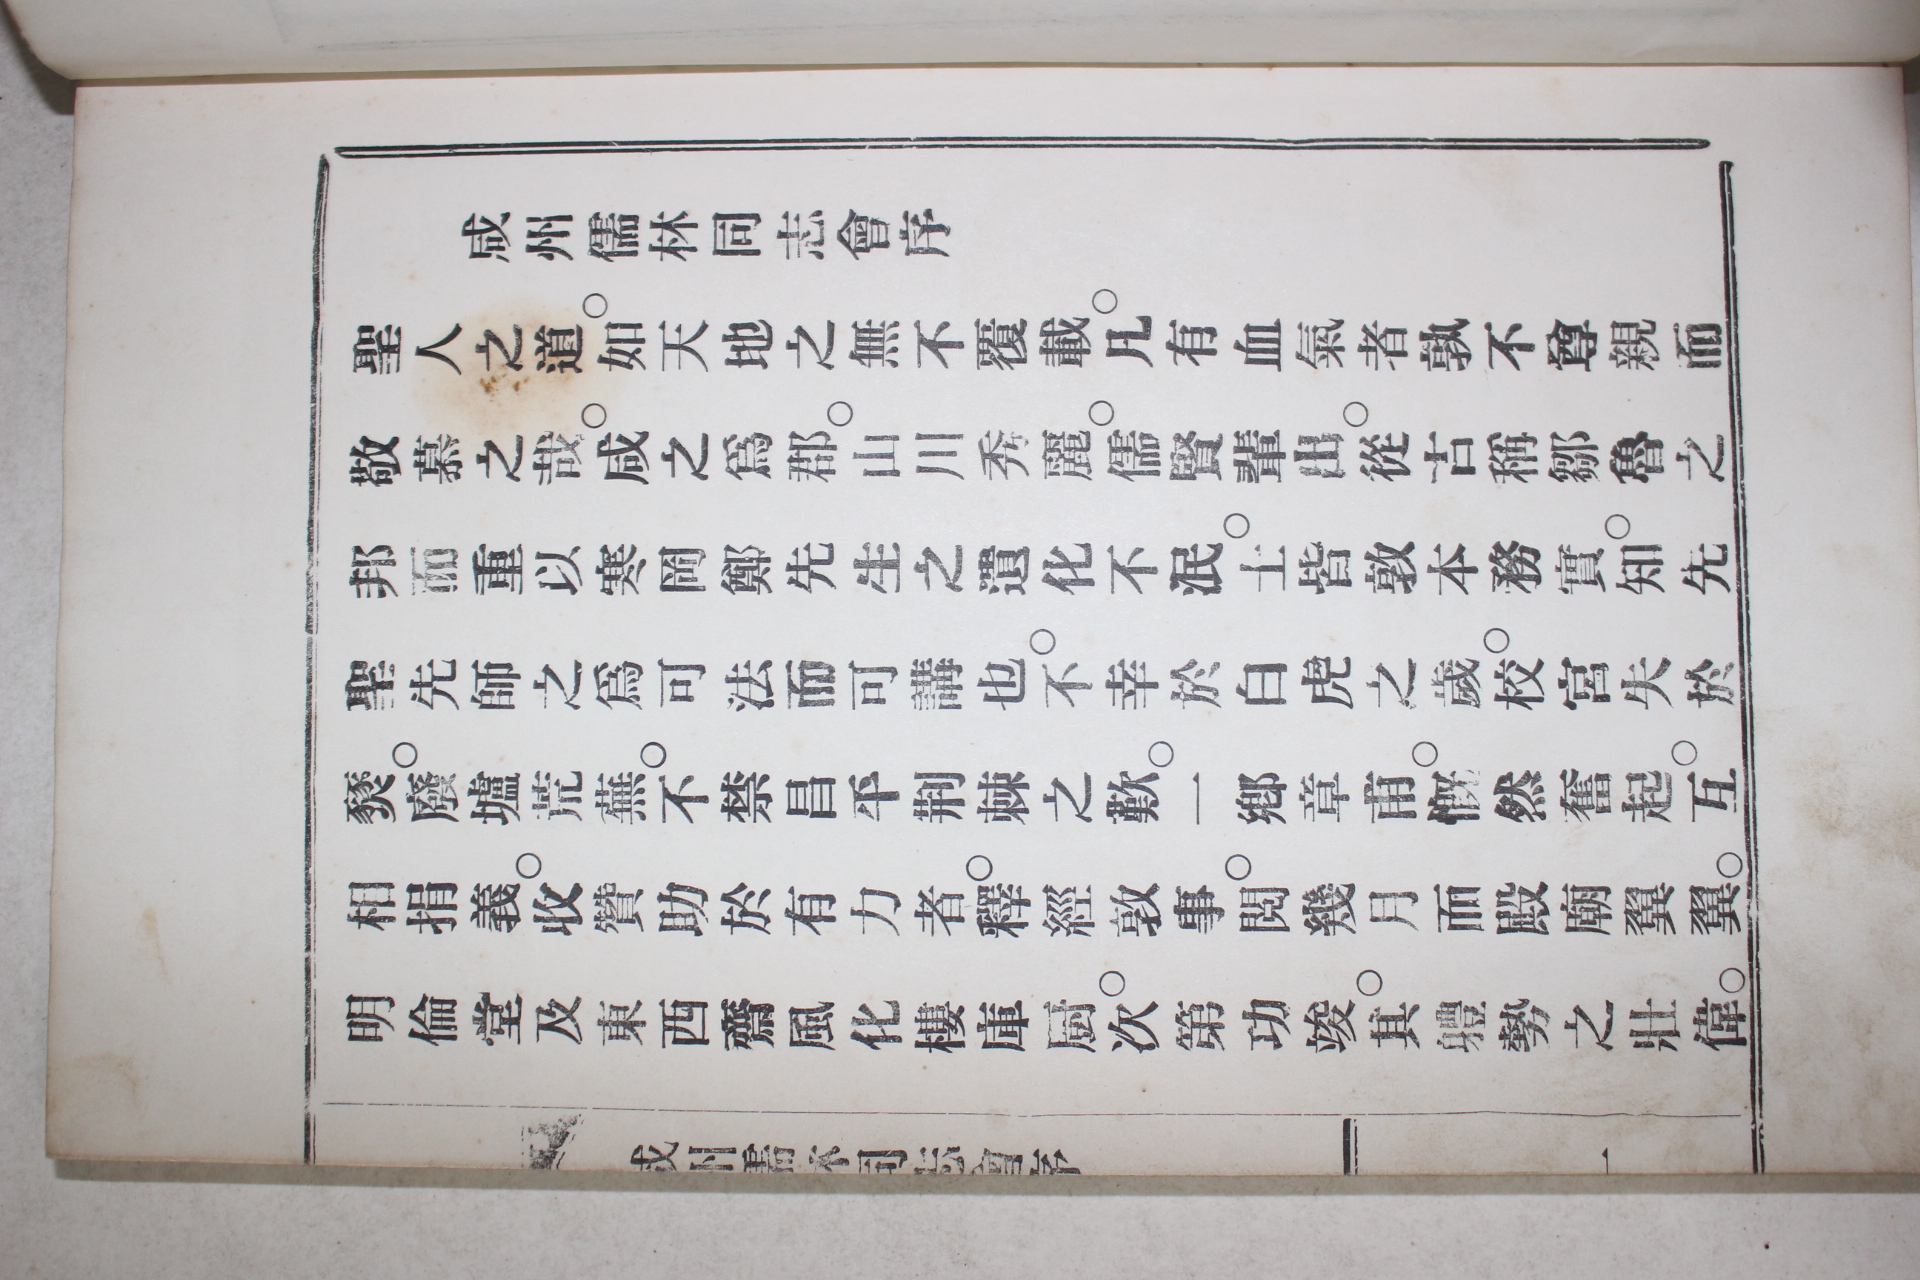 咸州儒林同志會序
聖人之道○如天地之無不覆載○凡有血氣者孰不尊親而
敬慕之哉○咸之爲郡○山川秀麗○儒賢輩出○從古稱鄒魯之
邦而重以寒岡鄭先生之遺化不泯○士皆敦本務實○知先
聖先師之爲可法而可講也○不幸於白虎之歲○校宮失於
燹○廢墟荒蕪○不禁昌平荆棘之歎○一鄕章甫○慨然奮起○互
相捐義○收贊助於有力者○釋經敦事○閱幾月而殿廟翼翼○
明倫堂及東西齋風化樓庫厨○次第功竣○其軆勢之壯偉○
咸州儒林同志會序
一